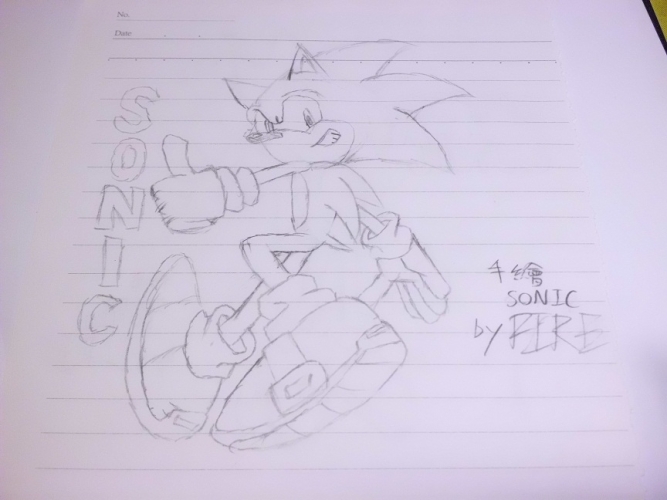 No.
Date
SONIC
手繪
SONIC
by FIRE